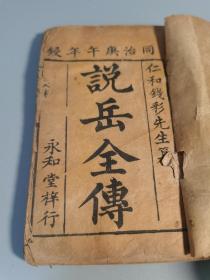 同治庚午年鐫
仁和錢彩先生著
說岳全傳
永和堂梓行